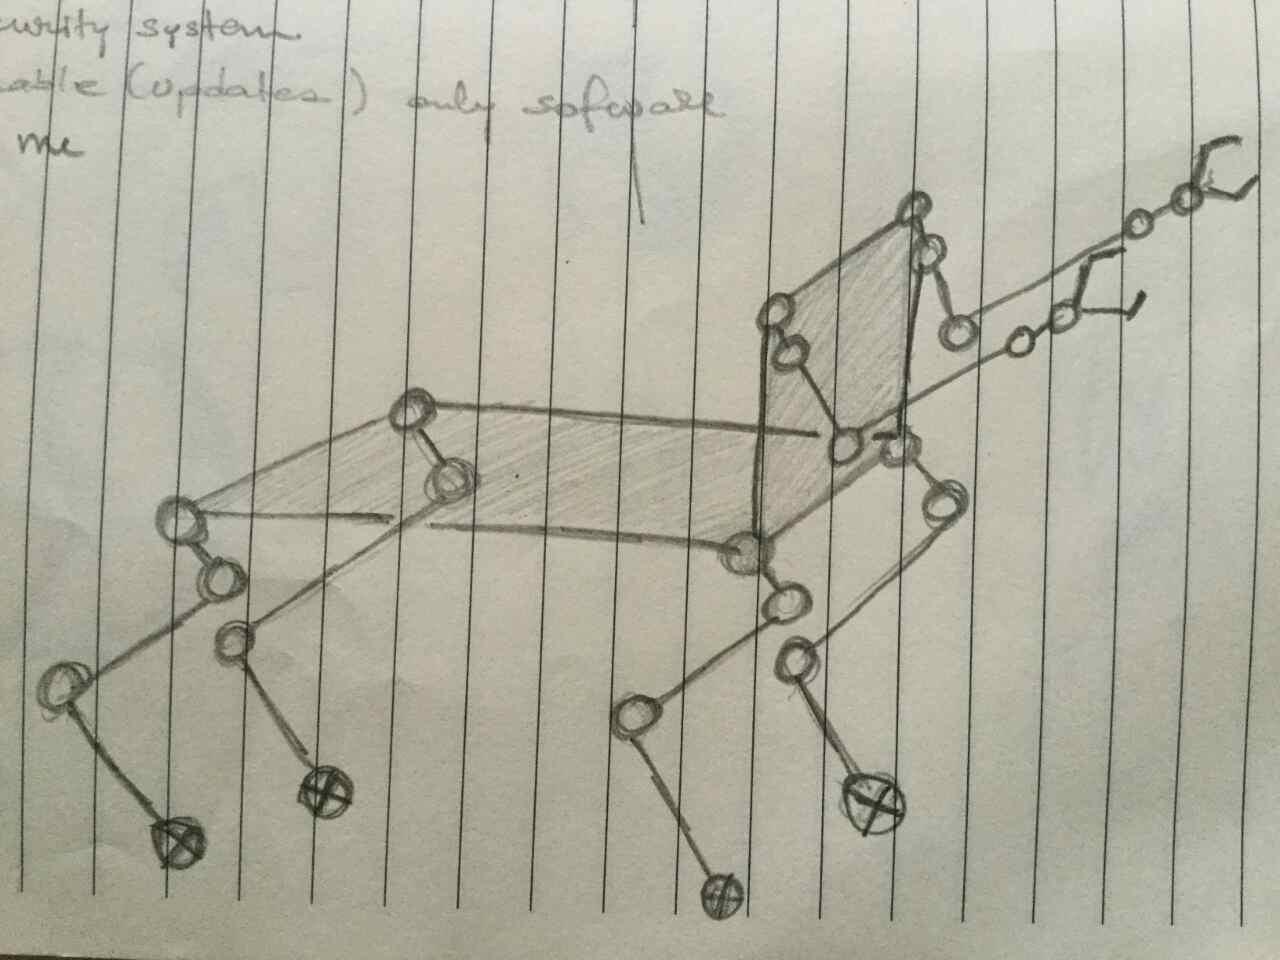 urity system
able (updates) only sofware
me